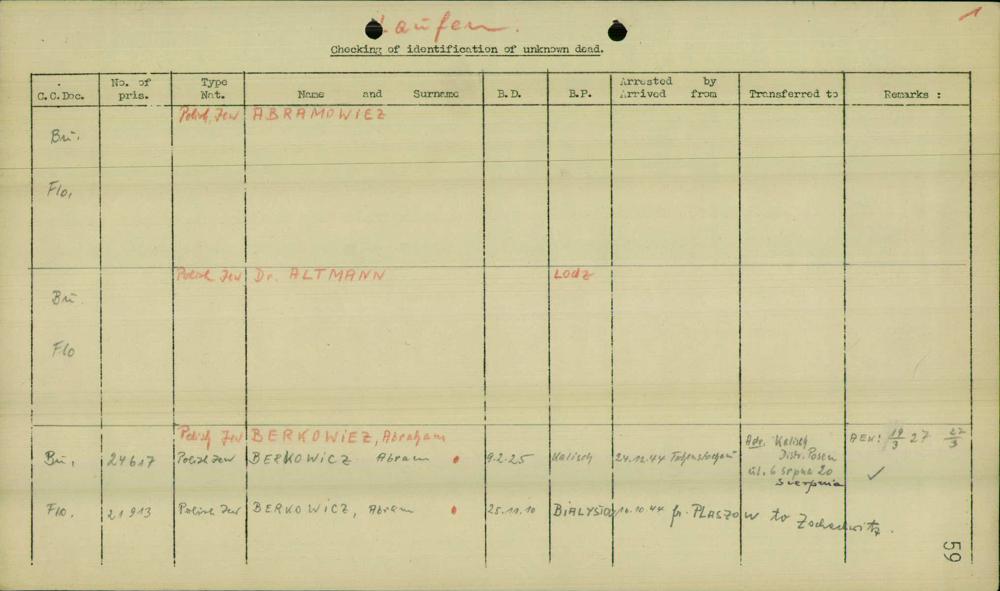 Laufen. 1
Checking of identification of unknown dead.
C.C.Doc. No. of pris. Type Nat. Name and Surname B.D. B.P. Arrested by Arrived from Transferred to Remarks :
Polish Jew ABRAMOWIEZ
Bu.
Flo.
Polish Jew Dr. ALTMANN Lodz
Bu.
Flo
Polish Jew BERKOWIEZ, Abraham
Bu. 24617 Polish Jew BERKOWICZ Abram 9.2.25 Kalisch 24.12.44 Adr. Kalisch
Distr. Posen
ul. 6 srpna 20
Sierpnia
19/3 27 27/3 ✓
Flo. 21913 Polish Jew BERKOWICZ, Abram 25.11.10 10.10.44 fr. PLASZOW to
59